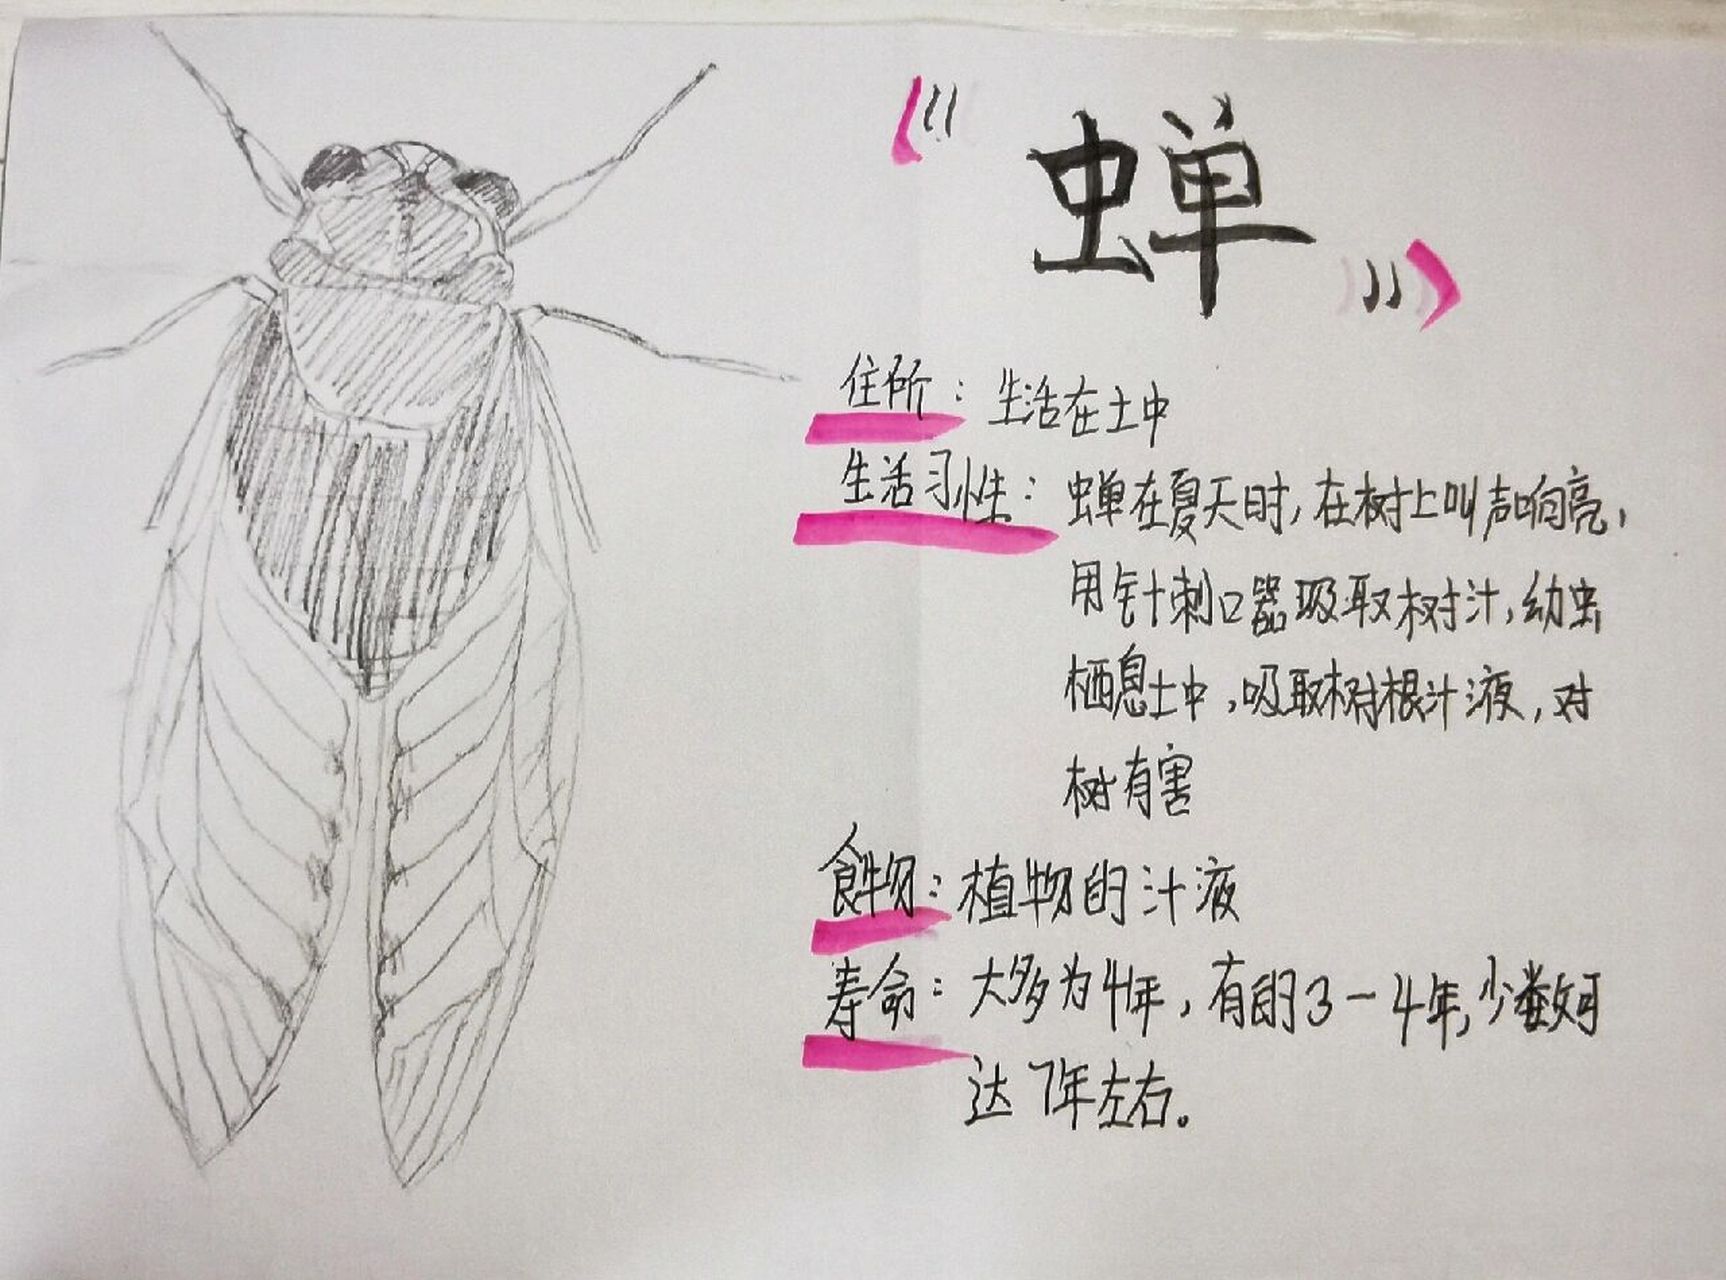 蝉
住所：生活在土中
生活习性：蝉在夏天时，在树上叫声响亮，
用针刺口器吸取树汁，幼虫
栖息土中，吸取树根汁液，对
树有害
食物：植物的汁液
寿命：大多为4年，有的3-4年，少数可
达7年左右。